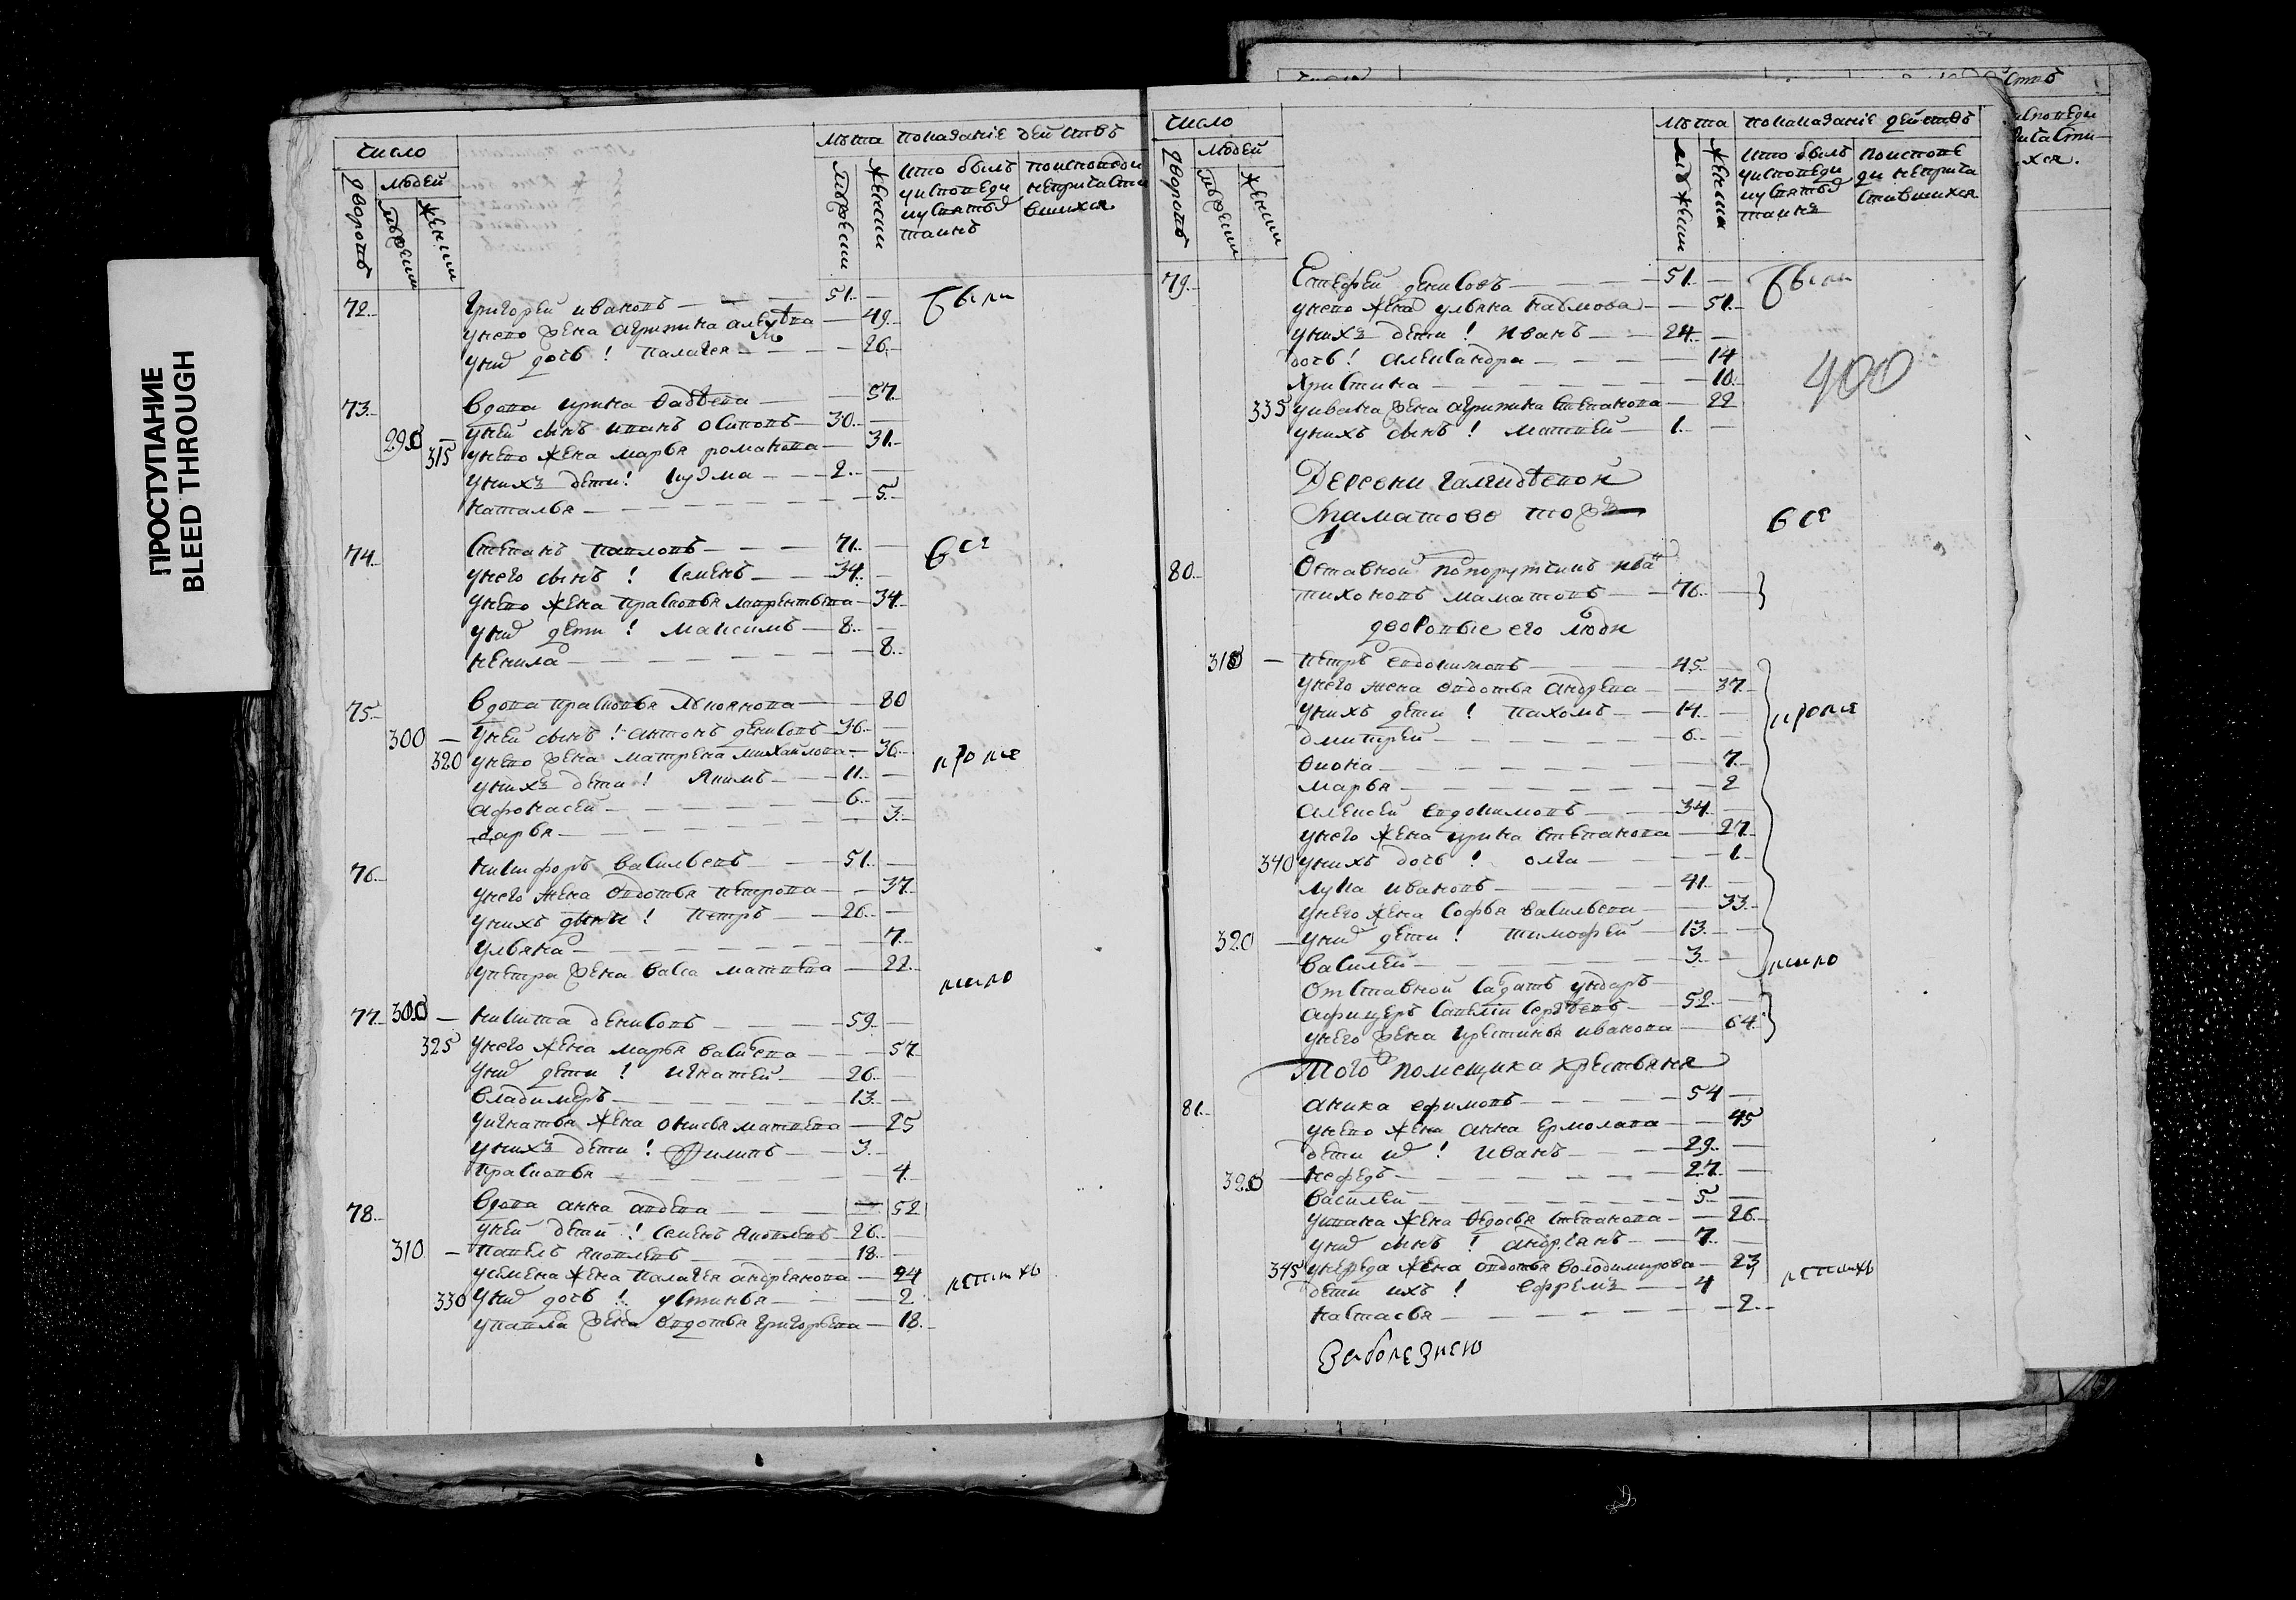 ПРОСТУПАНИЕ
BLEED THROUGH
число
лѣта показанiе действъ
дворовъ
людей
мужескъ
женскъ
мужескъ
женскъ
кто былъ уисповеди иусвятыхъ таинъ
поисповеди непричастившихся
72. Григорей ивановъ 51. были
унево жена агрипина 49.
уних дочь! палагея 26.
73. вдова ирина 57.
уней сынъ иванъ осиповъ 30.
290 315 унево жена марья романова 31.
унихъ дети! кузма 2.
наталья 5.
74. степанъ павловъ 71. все
унего сынъ! семенъ 34.
унево жена прасковья лаврентьева 34.
уних дети! максимъ 8.
ненила 8.
75. вдова прасковья лукоянова 80
300 уней сынъ! антонъ денисовъ 36.
320 унево жена матрена михайлова 36. кроме
унихъ дети! якимъ 11.
афонасей 6.
дарья 3.
76. никифоръ васильевъ 51.
унего жена овдотья петрова 37.
унихъ дети! петръ 26.
ульяна 7.
упетра жена васа матвева 22.
кито
77. 300 никита денисовъ 59.
325 унего жена марья васильева 57
уних дети! игнатей 26.
владимеръ 13.
уигнатья жена онисья матвева 25
унихъ дети! филипъ 3.
прасковья 4.
78. вдова анна авдева 52
уней детей! семенъ яковлевъ 26.
310 павелъ яковлевъ 18.
усемена жена палагея андреянова 24
330 уних дочь! устинья 2.
упавла жена овдотья григорьева 18.
число
лѣта показанiе действъ
дворовъ
людей
мужескъ
женскъ
мужескъ
женска
кто былъ уисповеди иусвятыхъ таинъ
поисповеди непричастившихся
79. Естефей денисовъ 51. были
унево жена ульяна наумова 51.
унихъ дети! иванъ 24.
дочь! александра 14
христина 10.
400
335 уивана жена агрипина степанова 22
унихъ сынъ! матвей 1.
Деревни
маматово тожъ
все
80. Оставной попорутчикъ ива
тихоновъ маматовъ 76.
дворовые его люди
310 петръ евдокимовъ 45.
унего жена овдотья андрева 37.
унихъ дети! пахомъ 14. кроме
дмитрей 6.
фиона 7.
марья 2
алексей евдокимовъ 34
унего жена ирина степанова 27.
340 унихъ дочь! олга 1
лука ивановъ 41.
унего жена софья васильева 33.
320 уних дети! тимофей 13.
василей 3. кито
отставной садатъ ундаръ
афицеръ савелiи сергѣевъ 52.
унего жена крестинья иванова 64.
Того помещика крестьяня
81. аника ефимовъ 54
унево жена анна ермолаева 45
дети их! иванъ 29.
320 нефедъ 27.
василей 5
уивана жена федосья степанова 26.
уних сынъ! андреянъ 7.
345 унефеда жена овдотья володимирова 23
дети ихъ! ефремъ 4
настасья 2.
Заболезнею